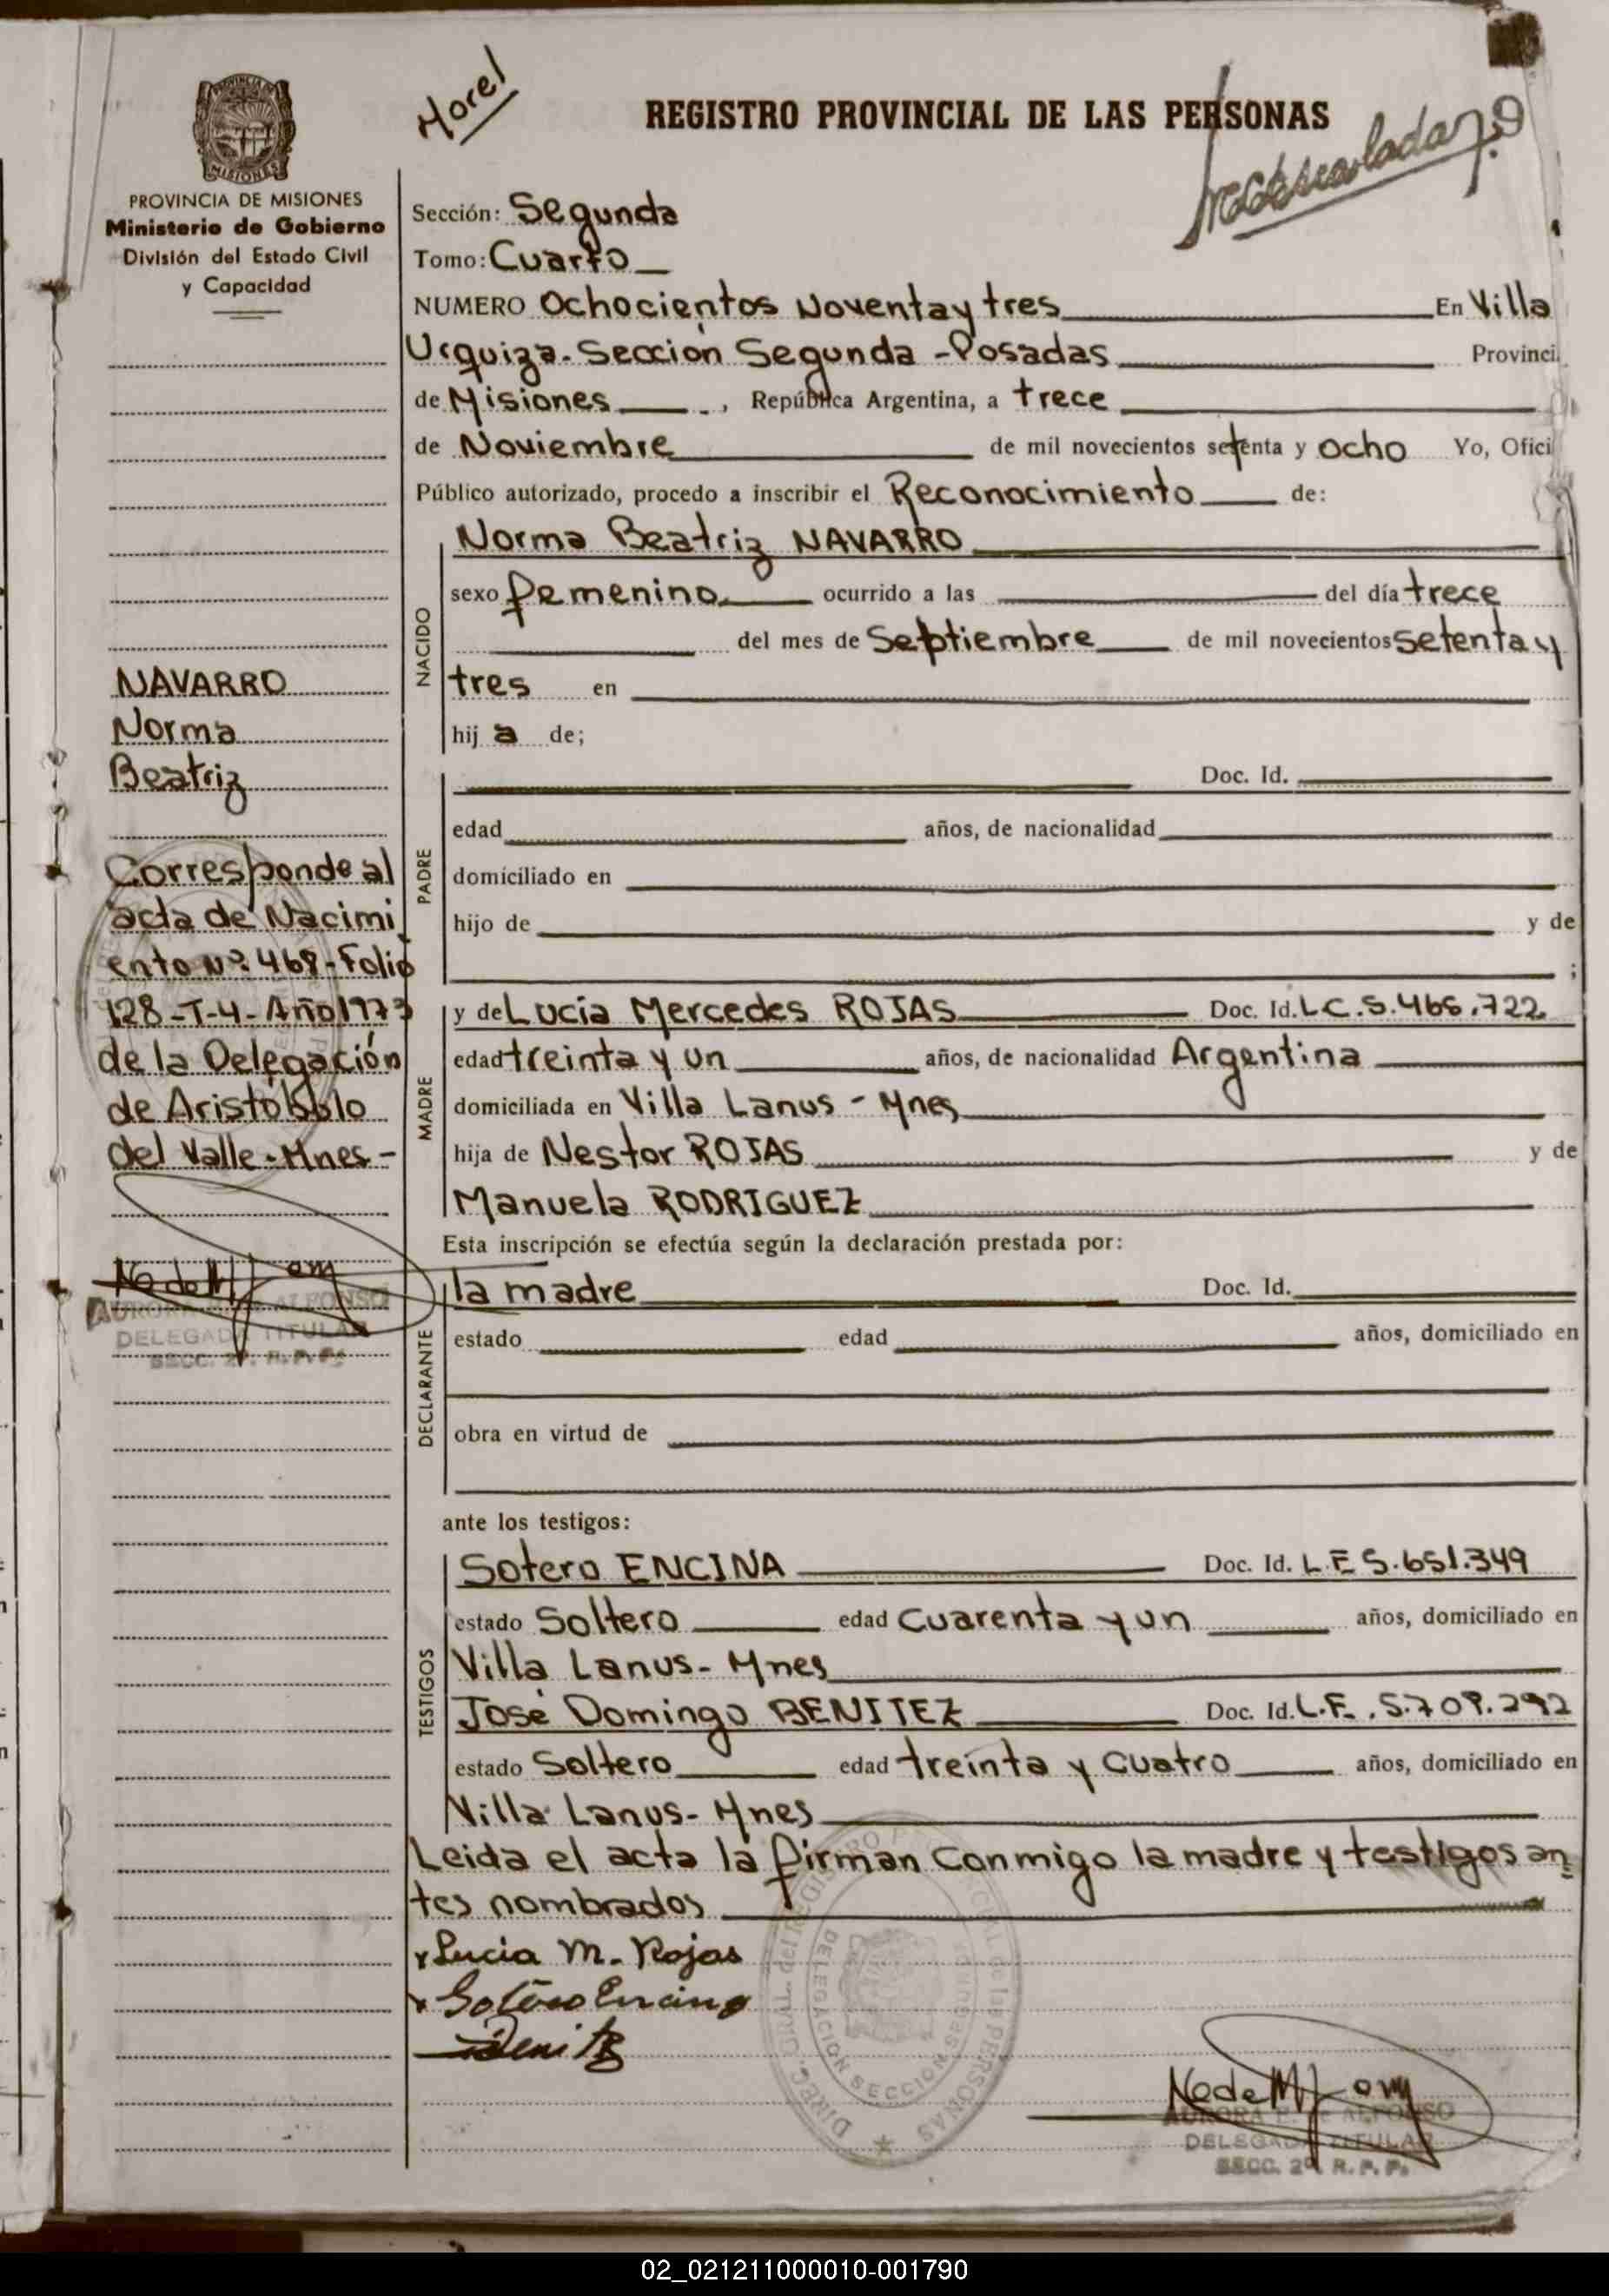 Morel
REGISTRO PROVINCIAL DE LAS PERSONAS
PROVINCIA DE MISIONES
Ministerio de Gobierno
División del Estado Civil
y Capacidad
Sección: Segunda
Tomo: Cuarto
NUMERO Ochocientos Noventa y tres En Villa
Urquiza. Seccion Segunda - Posadas Provinci
de Misiones, República Argentina, a trece
de Noviembre de mil novecientos setenta y ocho Yo, Ofici
Público autorizado, procedo a inscribir el Reconocimiento de:
NACIDO
Norma Beatriz NAVARRO
sexo femenino ocurrido a las del día trece
del mes de Septiembre de mil novecientos setenta y
tres en
hij a de;
NAVARRO
Norma
Beatriz
Corresponde al
acta de Nacimi
ento Nº 468-Folio
128-T-4-Año 1973
de la Delegación
de Aristóbulo
del Valle-Mnes-
AURORA E. de ALFONSO
DELEGADA TITULAR
SECC. 2ª R. P. P.
PADRE
Doc. Id.
edad años, de nacionalidad
domiciliado en
hijo de y de
;
MADRE
y de Lucía Mercedes ROJAS Doc. Id. L.C. 5.465.722
edad treinta y un años, de nacionalidad Argentina
domiciliada en Villa Lanus - Mnes
hija de Nestor ROJAS y de
Manuela RODRIGUEZ
Esta inscripción se efectúa según la declaración prestada por:
DECLARANTE
la madre Doc. Id.
estado edad años, domiciliado en
obra en virtud de
ante los testigos:
TESTIGOS
Sotero ENCINA Doc. Id. L.E 5.651.349
estado Soltero edad Cuarenta y un años, domiciliado en
Villa Lanus- Mnes
José Domingo BENITEZ Doc. Id. L.E. 5.709.292
estado Soltero edad treinta y cuatro años, domiciliado en
Villa Lanus- Mnes
Leida el acta la firman conmigo la madre y testigos an
tes nombrados
x Lucia M. Rojas
x Sotero Encina
Benitez
DIREC. GRAL. del REGISTRO PROVINCIAL de las PERSONAS
DELEGACION SECCION
AURORA E. de ALFONSO
DELEGADA TITULAR
SECC. 2ª R. P. P.
02_021211000010-001790